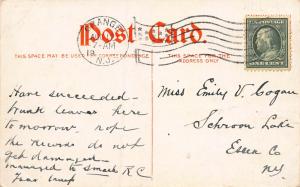 Post Card.
THIS SPACE MAY BE USED FOR CORRESPONDENCE.
THIS SPACE IS FOR THE
ADDRESS ONLY
ORANGE
7-AM
19
N.J.
ONE CENT
Have succeeded-
trunk leaves here
to morrow, hope
the records do not
get damaged-
managed to smash R C
Miss Emily V. Cogan
Schroon Lake
Essex Co
NY.